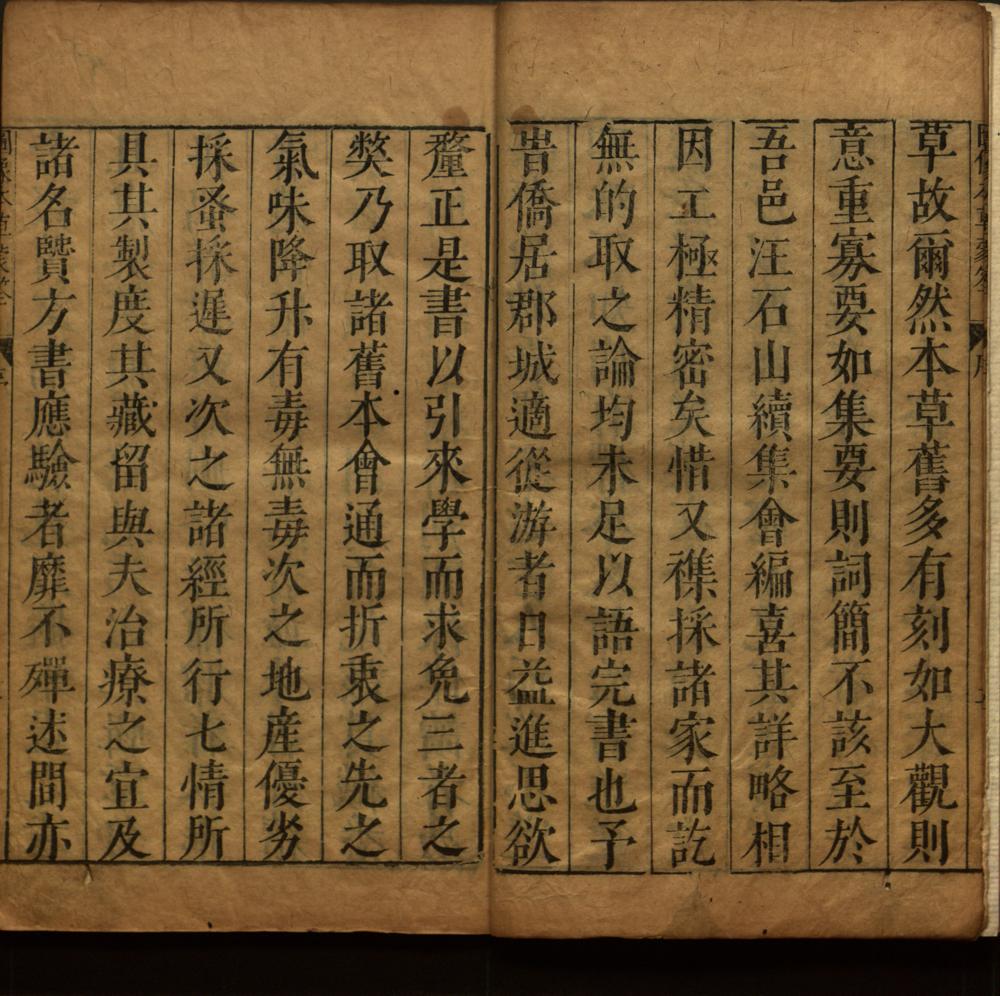 草故爾然本草舊多有刻如大觀則
意重寡要如集要則詞簡不該至於
吾邑汪石山續集會編喜其詳略相
因工極精密矣惜又襍採諸家而訖
無的取之論均未足以語完書也予
昔僑居郡城適從游者日益進思欲
釐正是書以引來學而求免三者之
獘乃取諸舊本會通而折衷之先之
氣味降升有毒無毒次之地產優劣
採蚤採遲又次之諸經所行七情所
具其製度其藏留與夫治療之宜及
諸名賢方書應驗者靡不殫述間亦